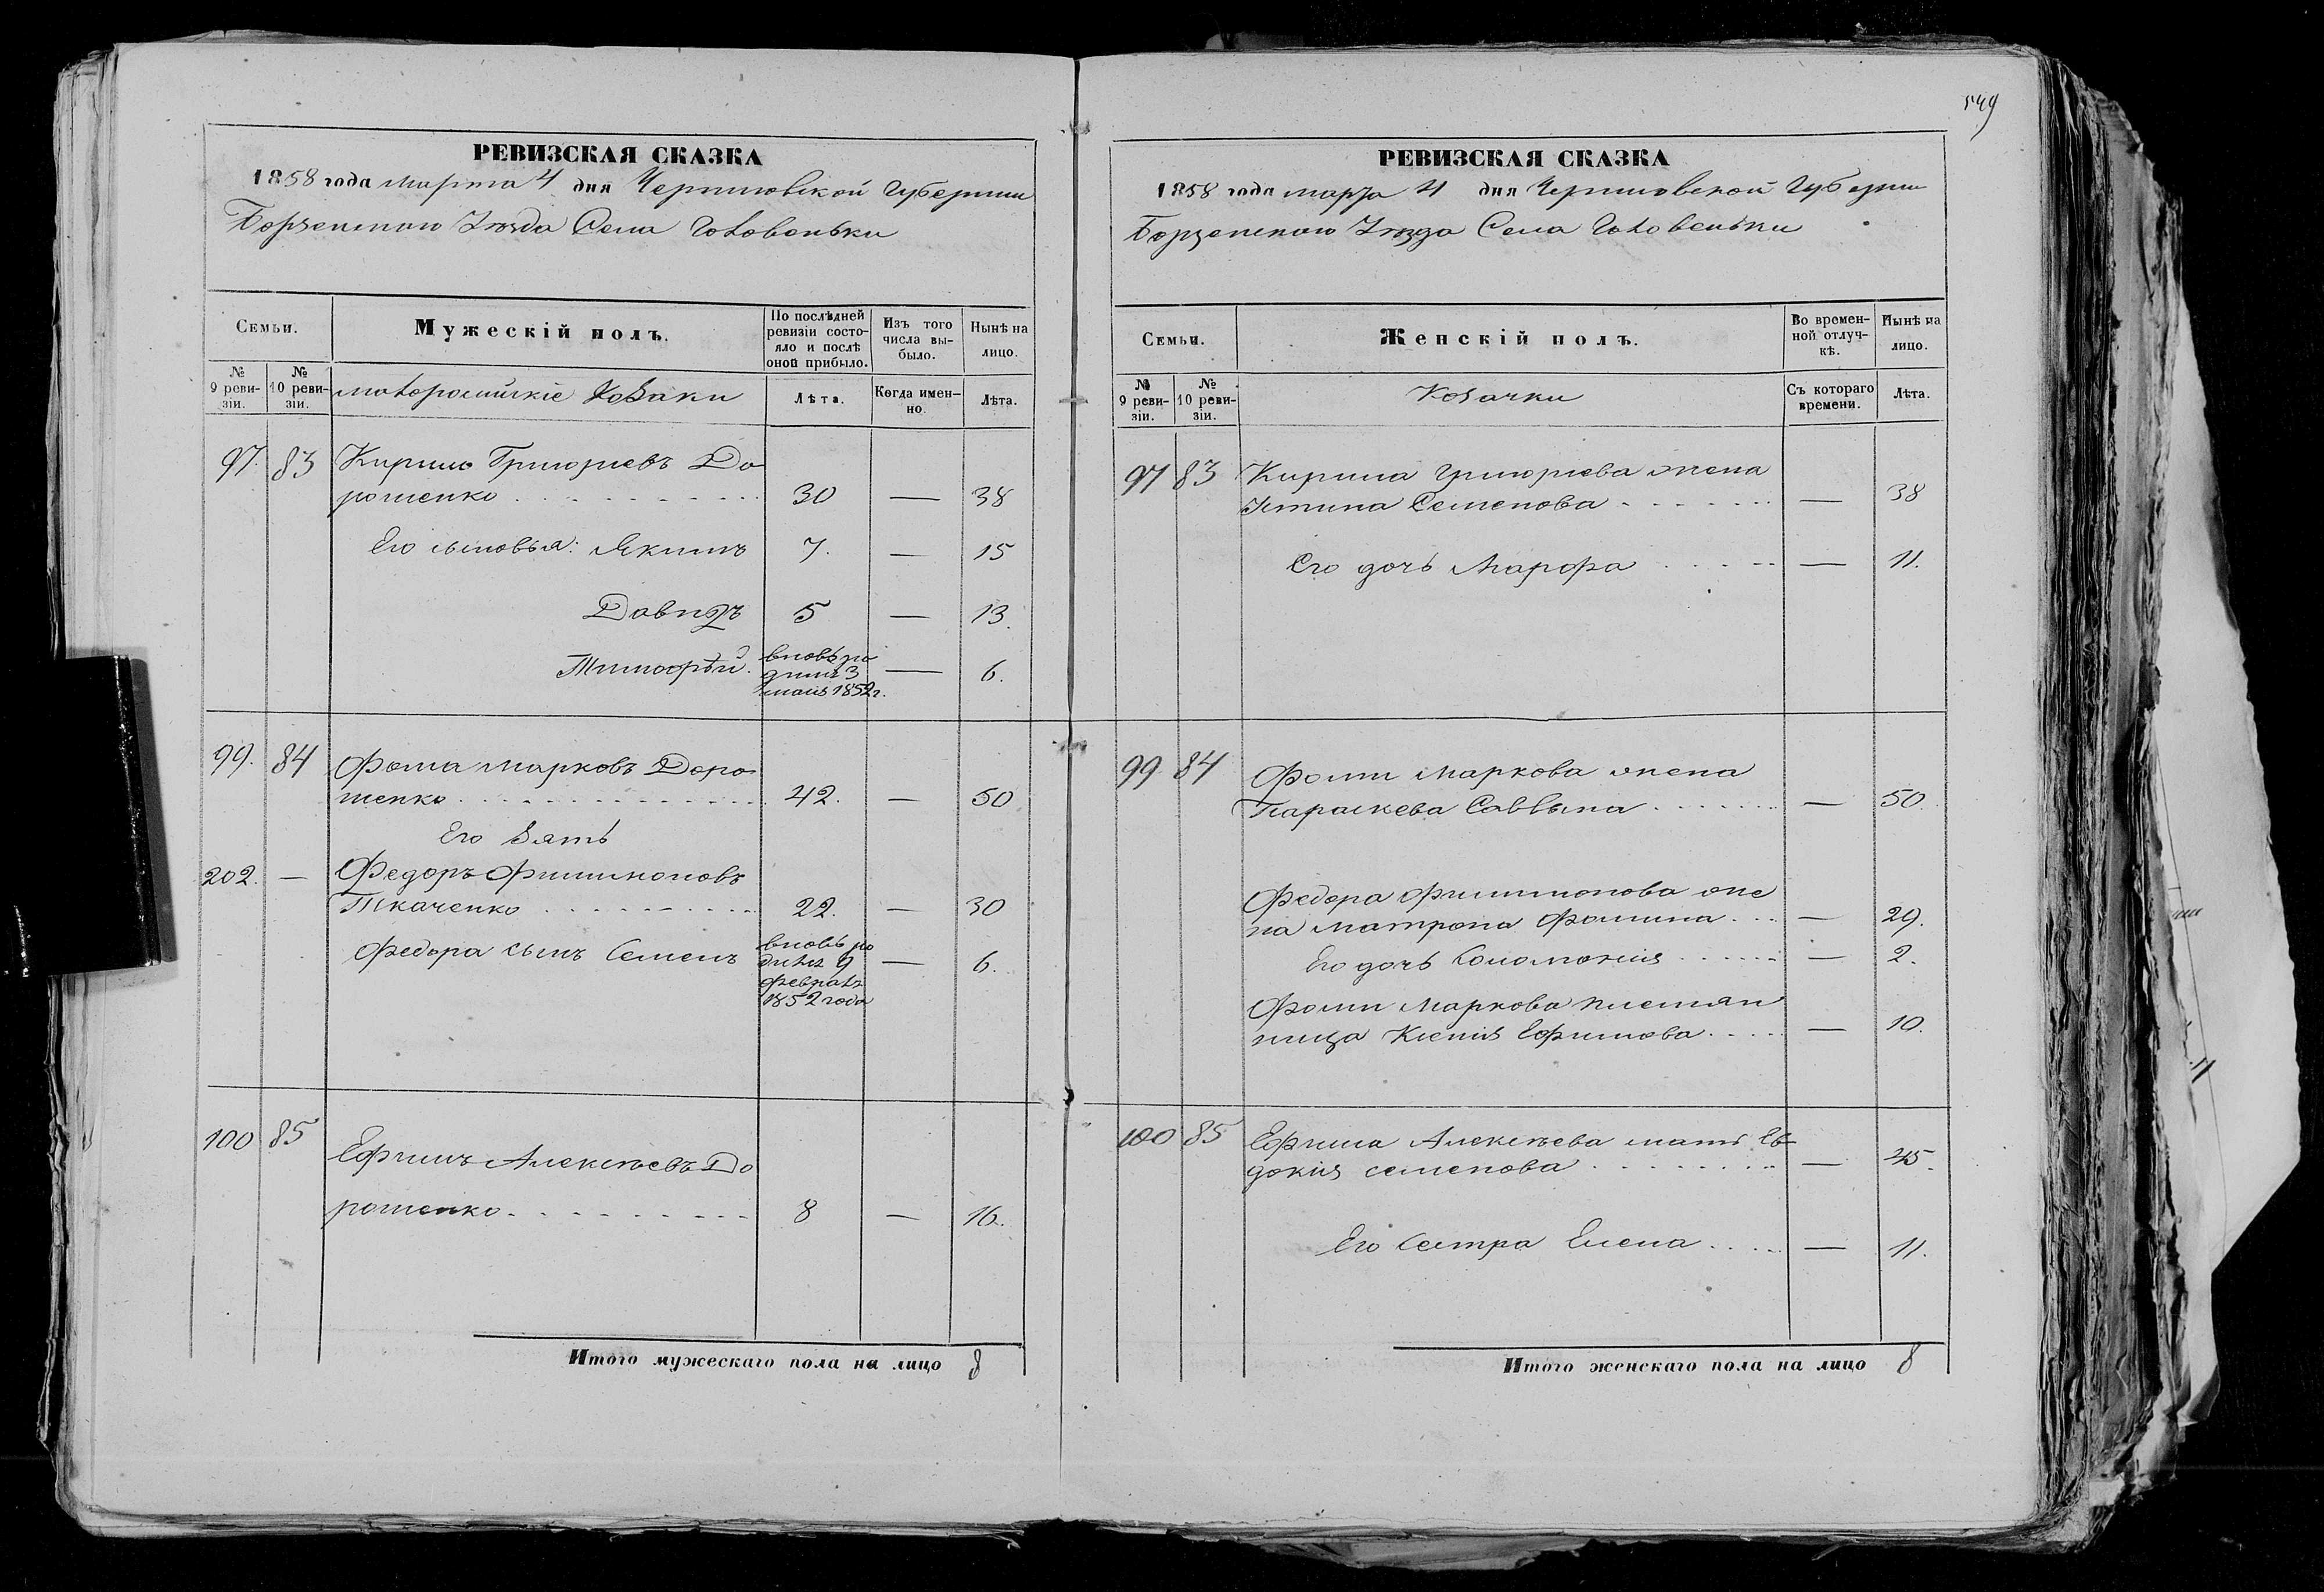 549
РЕВИЗСКАЯ СКАЗКА
1858 года марта 4 дня Черниговской Губернии
Борзенского Уѣзда Села Головеньки
Семьи.
Мужескій полъ.
По послѣдней ревизіи состо-
яло и послѣ оной прибыло.
Изъ того числа вы-
было.
Нынѣ на лицо.
№ 9 реви-
зіи.
№ 10 реви-
зіи.
малороссійскіе Козаки
Лѣта.
Когда имен-
но.
Лѣта.
97. 83 Кирило Григорьевъ До
рошенко 30 — 38
Его сыновья: Якимъ 7. — 15
Давидъ 5 — 13.
Тимофѣй. вновь ро
дился 3
маія 1852 г. — 6.
99. 84 Фома Марковъ Доро
шенко 42. — 50
Его Зять
202. — Федоръ Филимоновъ
Ткаченко 22. — 30
Федора сынъ Семенъ вновь ро
дился 9
февраля
1852 года — 6.
100 85 Ефимъ Алексѣевъ До
рошенко 8 — 16.
Итого мужескаго пола на лицо 8
РЕВИЗСКАЯ СКАЗКА
1858 года марта 4 дня Черниговской Губернии
Борзенского Уѣзда Села Головеньки
Семьи.
Женскій полъ.
Во времен-
ной отлуч-
кѣ.
Нынѣ на лицо.
№ 9 реви-
зіи.
№ 10 реви-
зіи.
Козачки
Съ котораго времени.
Лѣта.
97 83 Кирила Григорьева жена
Устина Семенова — 38
Его дочь Марфа — 11.
99 84 Фомы Маркова жена
Параскева Саввына — 50.
Федора Филимонова же
на Матрона Фомина — 29.
Его дочь Соломонія — 2.
Фомы Маркова племян
ница Ксенія Ефимова — 10.
100 85 Ефима Алексѣева мать Ев
докія Семенова — 45.
Его Сестра Елена — 11.
Итого женскаго пола на лицо 8